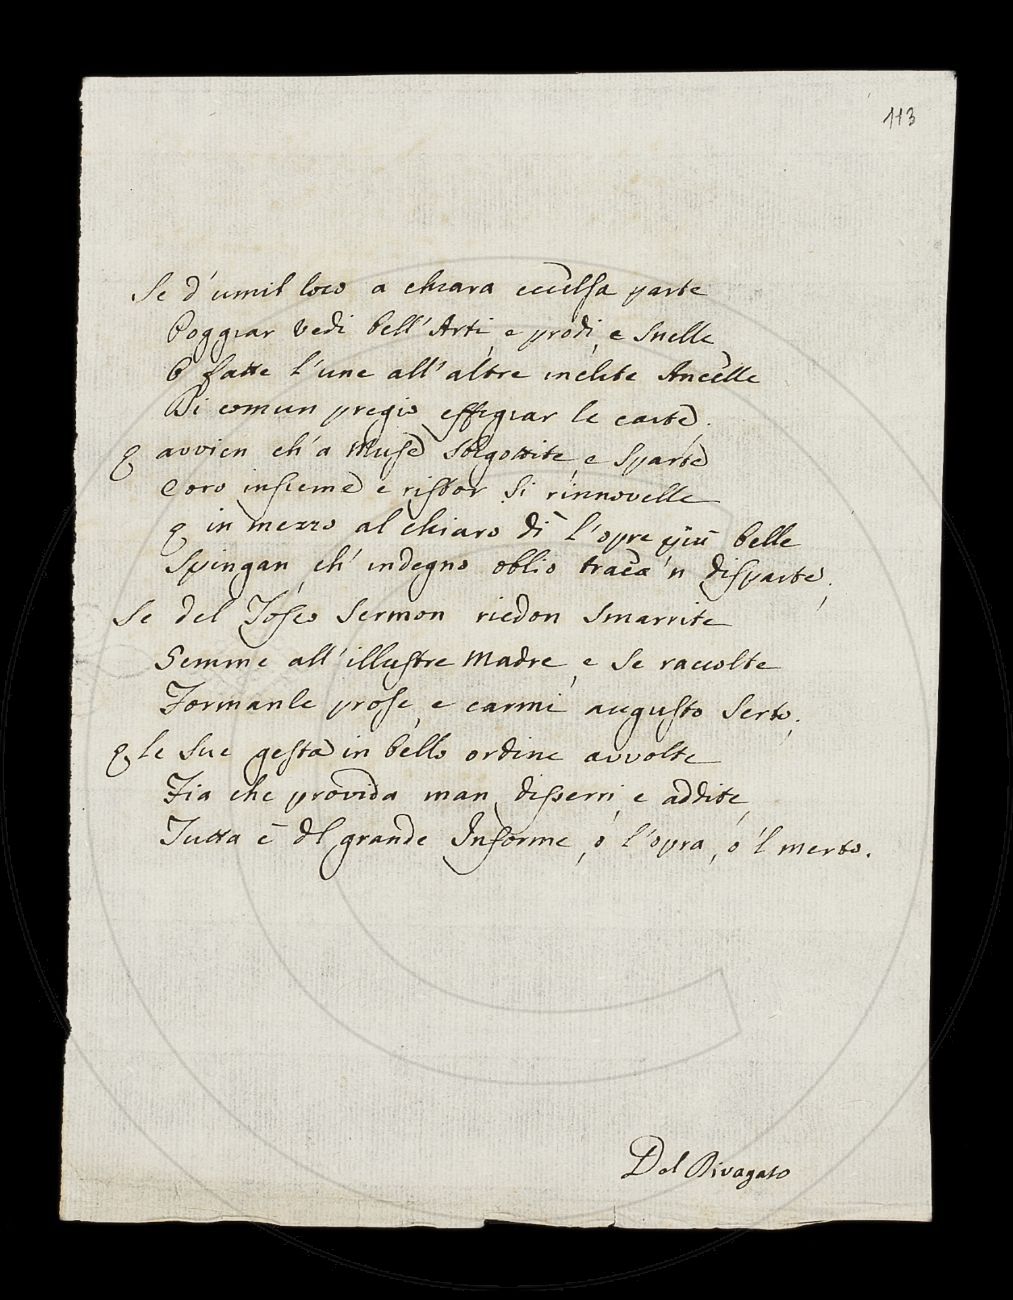 113
Se d'umil loco a chiara eccelsa parte
Poggiar vedi bell'Arti, e prodi, e snelle
E fatte l'une all'altre inclite Ancelle
Di comun pregio effigiar le carte,
E avvien ch'a Muse e sparte
Coro insieme e ristor si rinnovelle
E in mezzo al chiaro dì l'opre più belle
Spingan, ch'indegno oblio traea 'n disparte;
Se del Tosco sermon riedon smarrite
Gemme all'illustre Madre, e se raccolte
Formanle prose, e carmi augusto serto;
E le sue gesta in bello ordine avvolte
Fia che provida man disserri, e addite,
Tutta è del grande Informe, o l'opra, o 'l merto.
Del Divagato